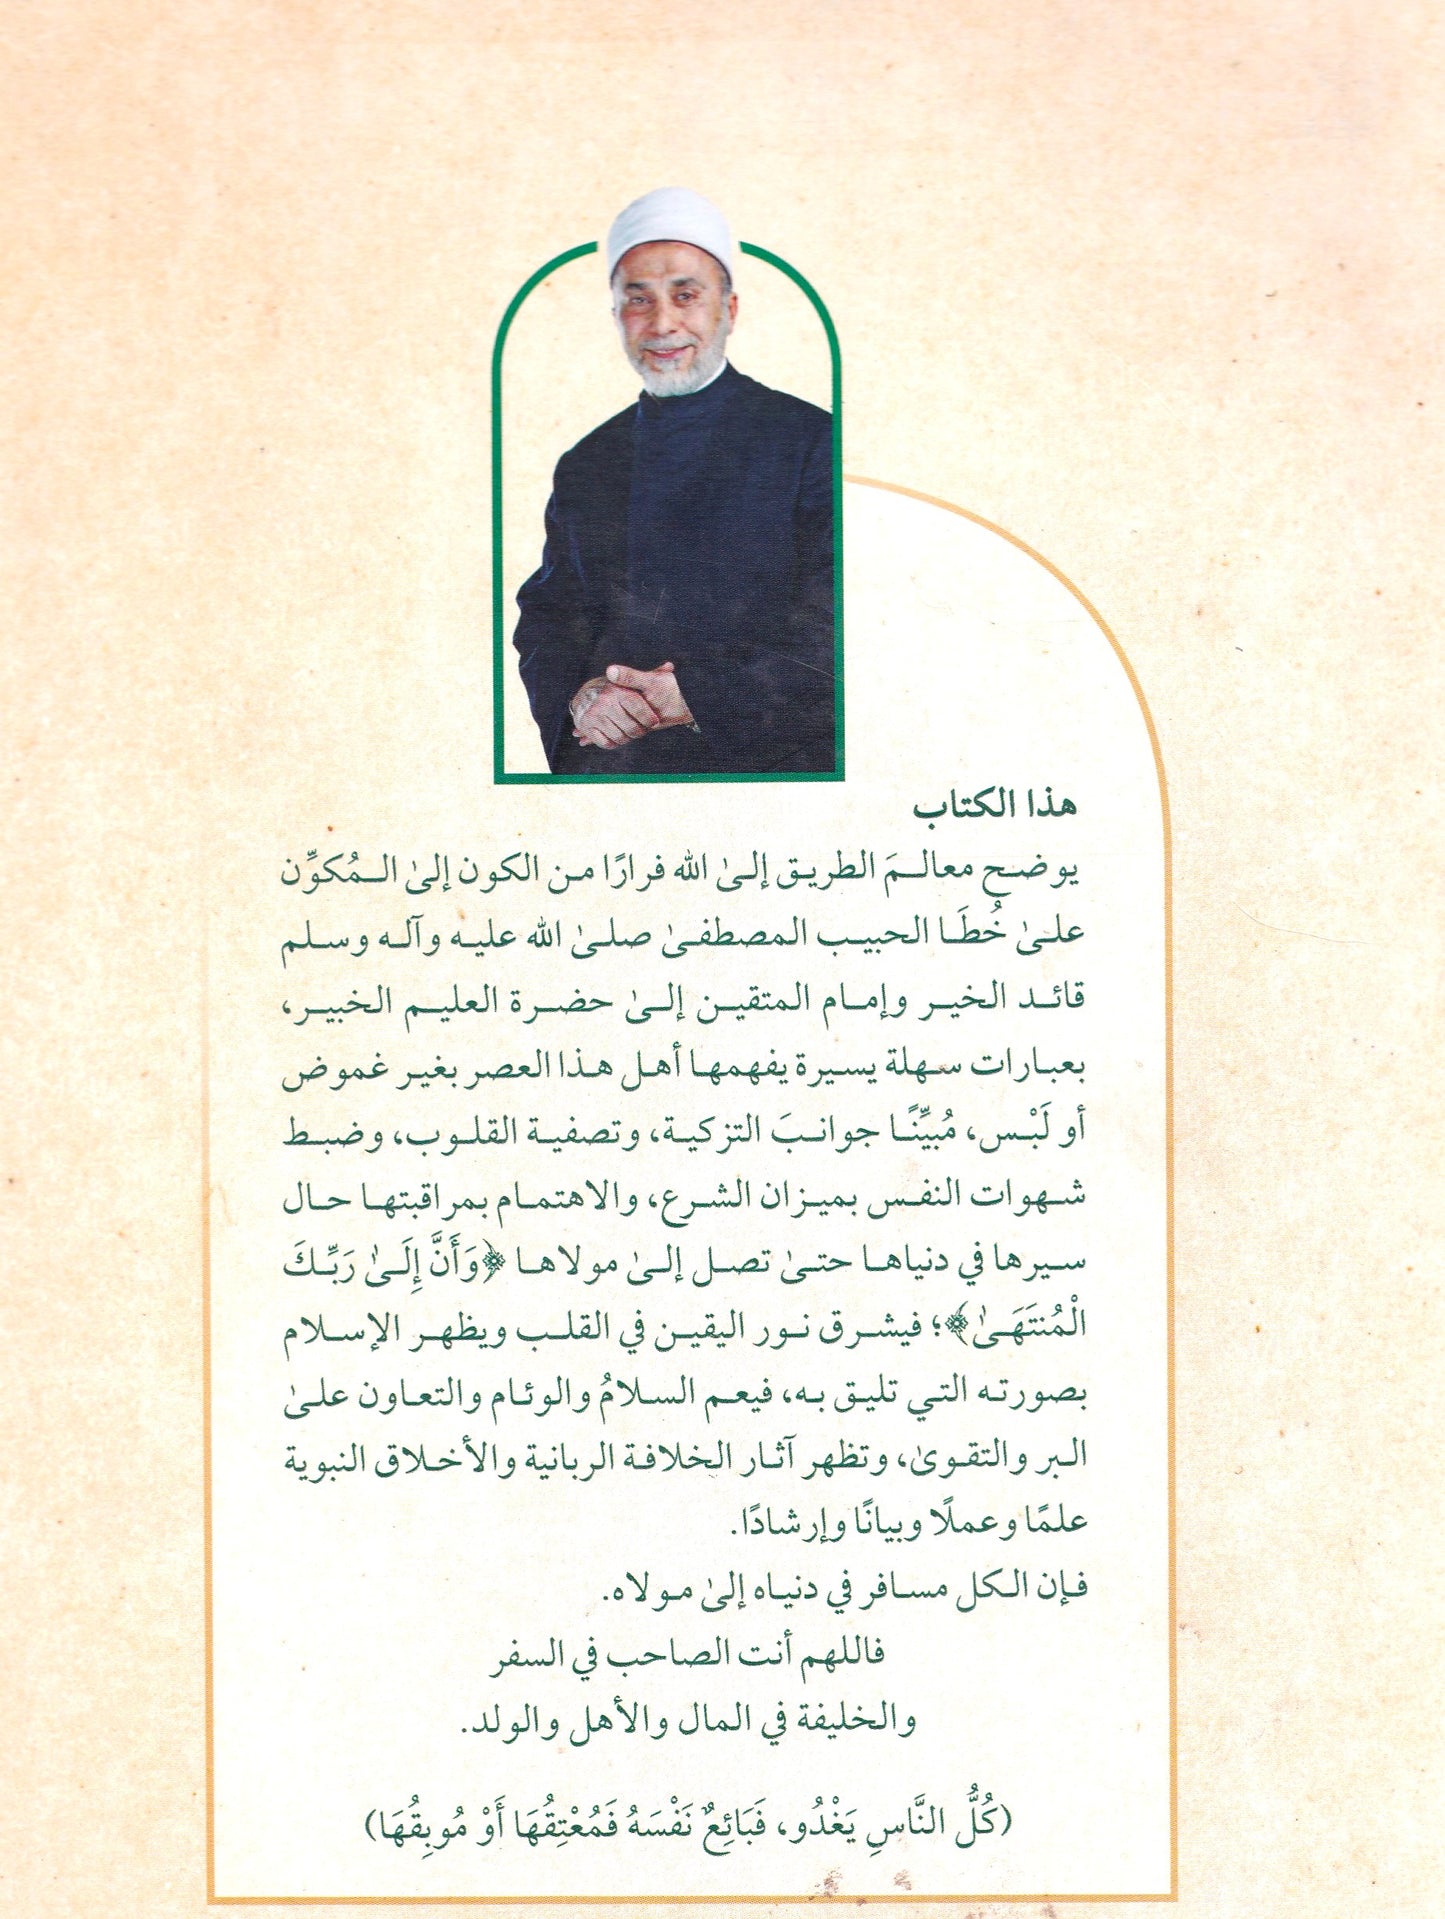 هذا الكتاب
يوضح معالمَ الطريق إلىٰ الله فرارًا من الكون إلىٰ المُكوِّن
علىٰ خُطَا الحبيب المصطفىٰ صلىٰ الله عليه وآله وسلم
قائد الخير وإمام المتقين إلىٰ حضرة العليم الخبير،
بعبارات سهلة يسيرة يفهمها أهل هذا العصر بغير غموض
أو لَبْس، مُبيِّنًا جوانبَ التزكية، وتصفية القلوب، وضبط
شهوات النفس بميزان الشرع، والاهتمام بمراقبتها حال
سيرها في دنياها حتىٰ تصل إلىٰ مولاها ﴿وَأَنَّ إِلَىٰ رَبِّكَ
الْمُنتَهَىٰ﴾؛ فيشرق نور اليقين في القلب ويظهر الإسلام
بصورته التي تليق به، فيعم السلامُ والوئام والتعاون علىٰ
البر والتقوىٰ، وتظهر آثار الخلافة الربانية والأخلاق النبوية
علمًا وعملًا وبيانًا وإرشادًا.
فإن الكل مسافر في دنياه إلىٰ مولاه.
فاللهم أنت الصاحب في السفر
والخليفة في المال والأهل والولد.
(كُلُّ النَّاسِ يَغْدُو، فَبَائِعٌ نَفْسَهُ فَمُعْتِقُهَا أَوْ مُوبِقُهَا)